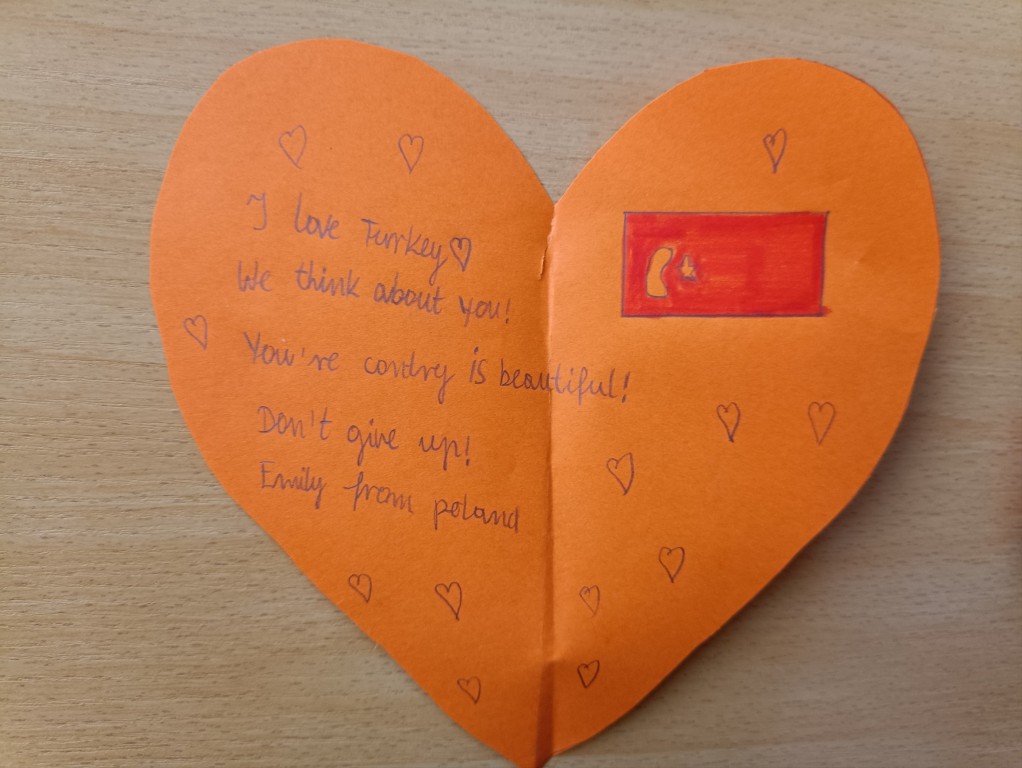 I love Turkey
We think about you!
You're contry is beautiful!
Don't give up!
Emily from poland